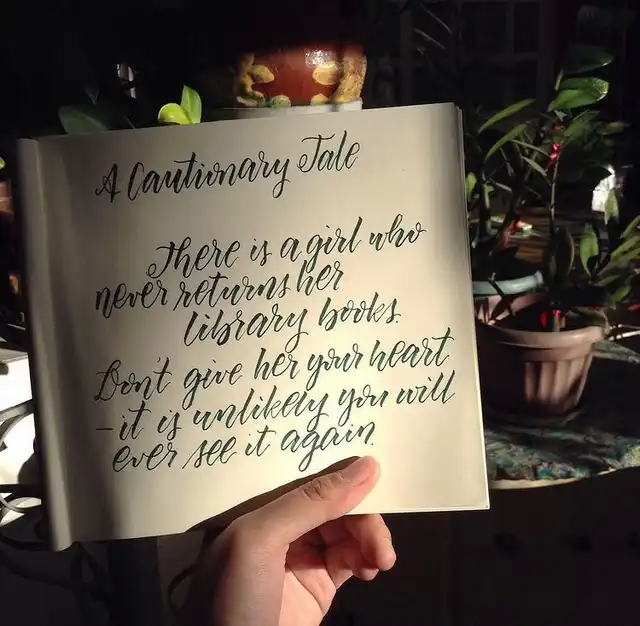 A Cautionary Tale
There is a girl who
never returns her
library books.
Don't give her your heart
-it is unlikely you will
ever see it again.